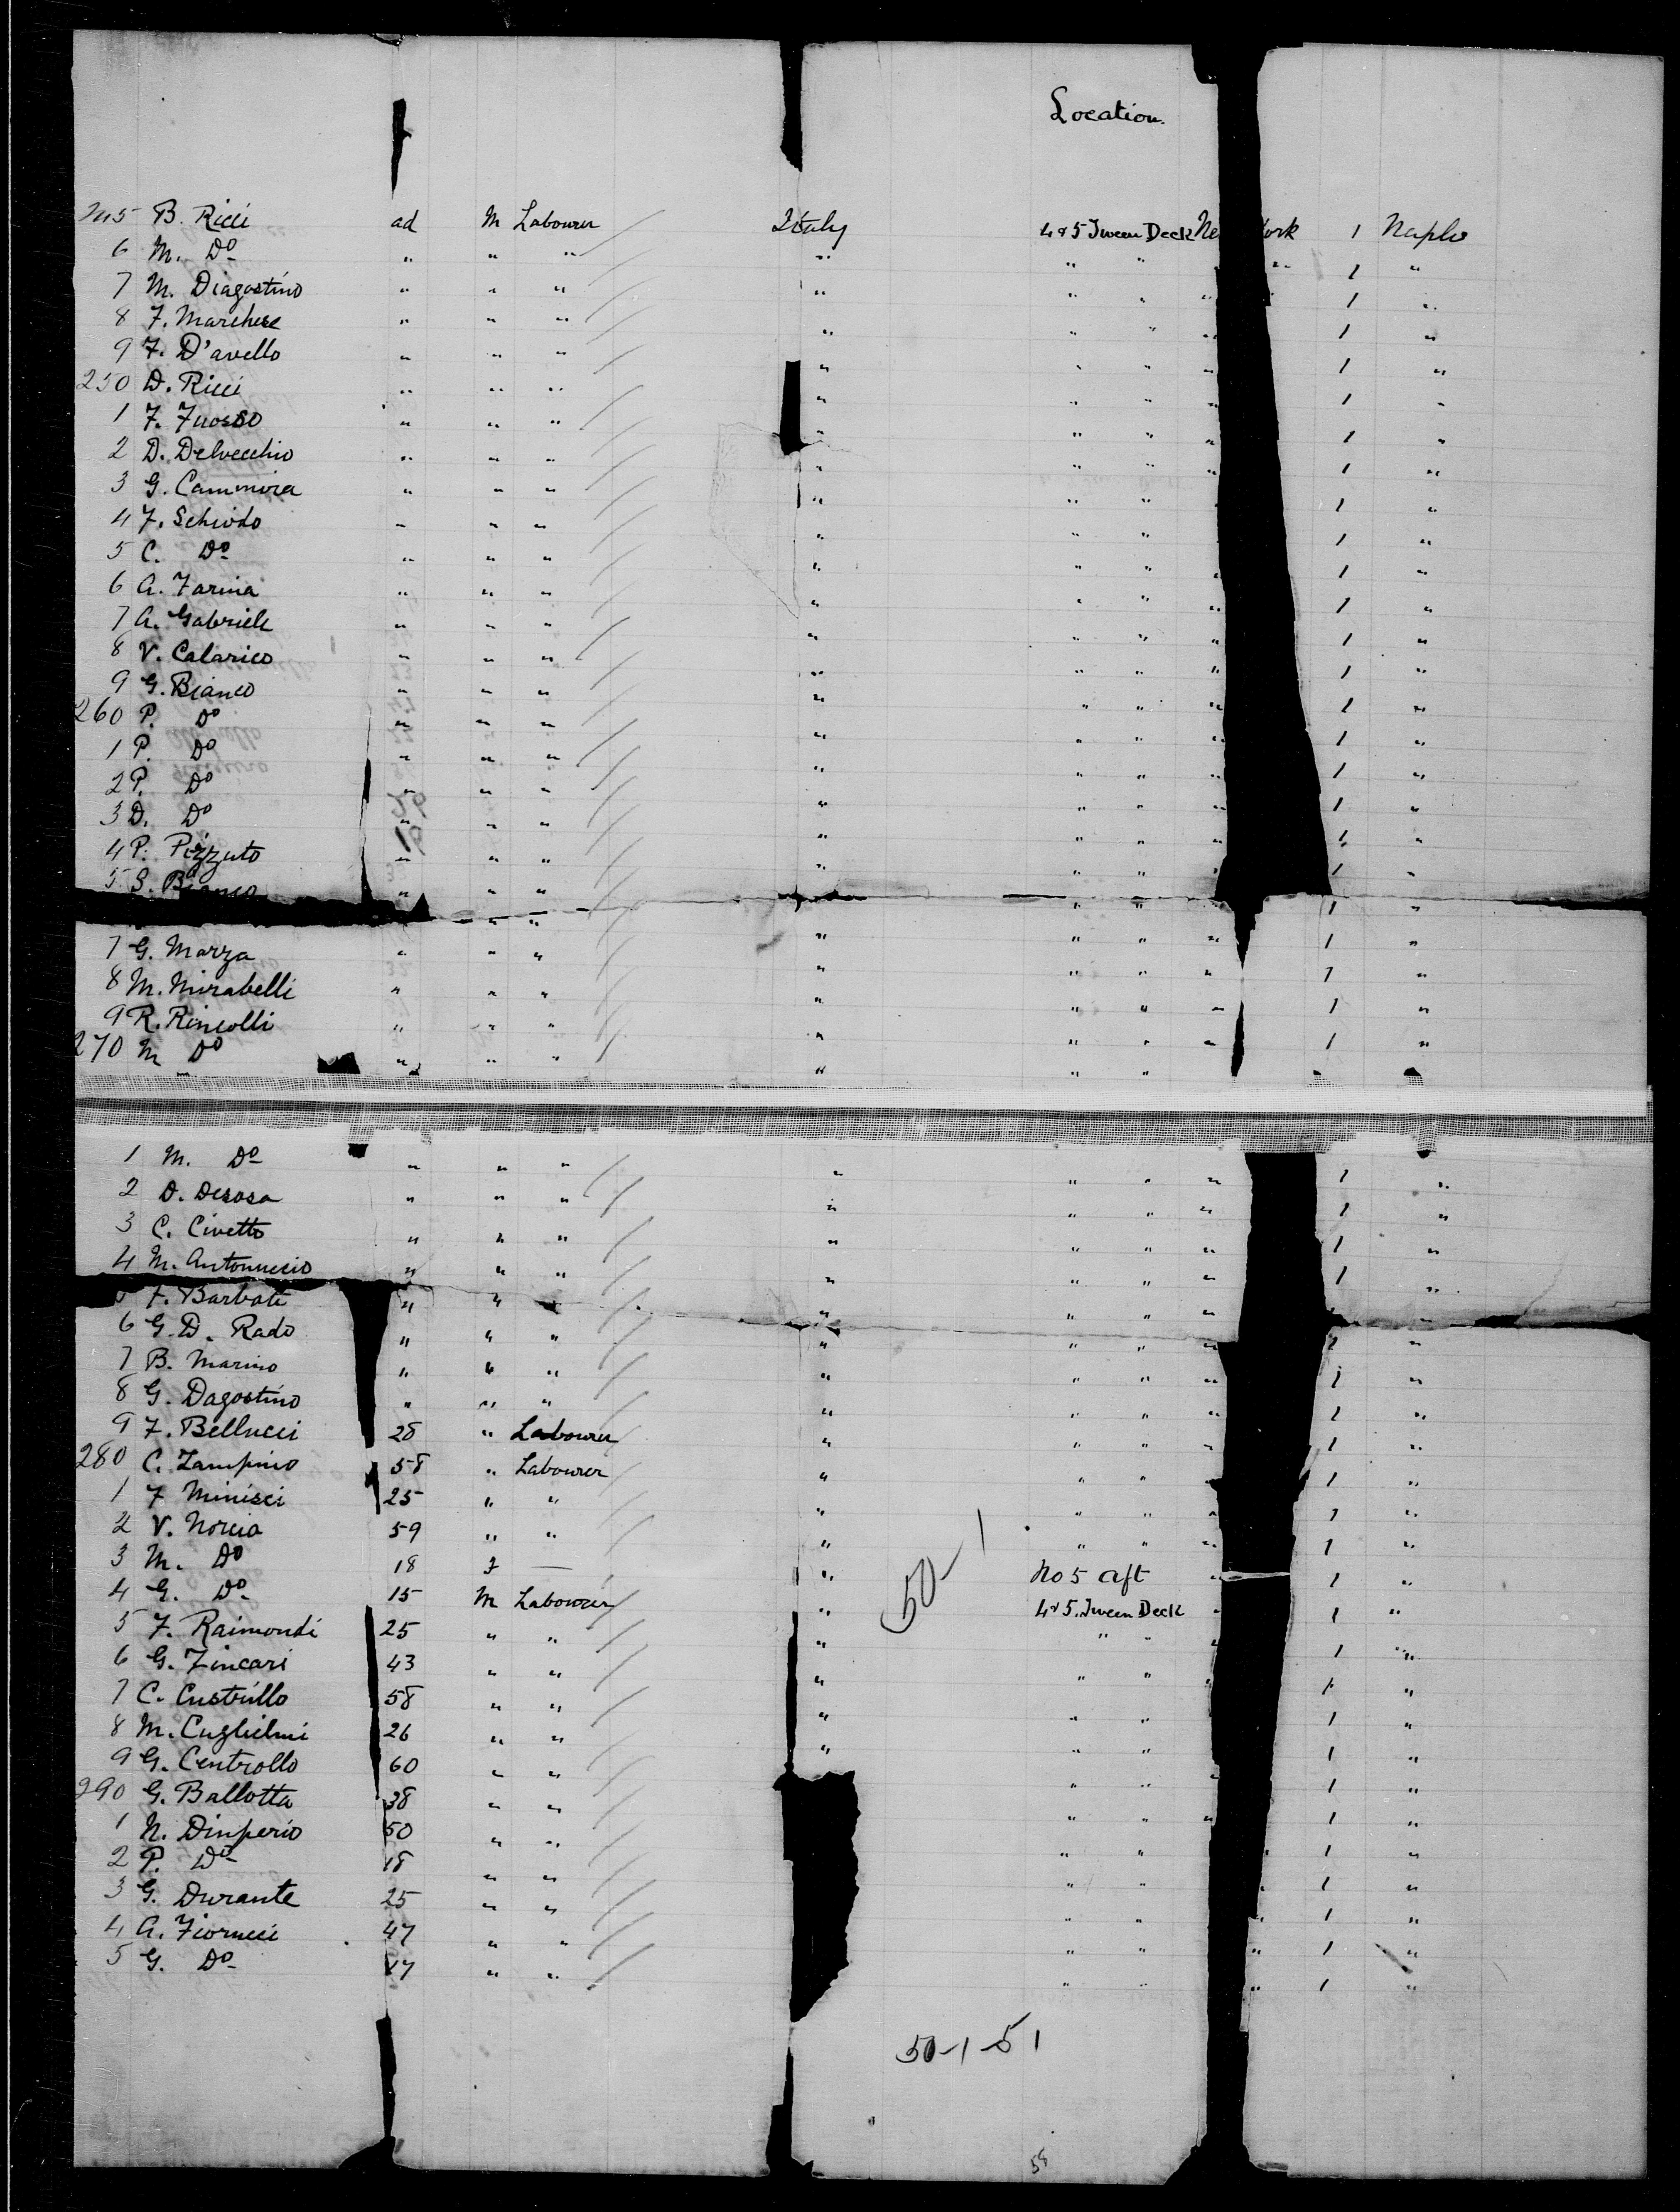 Location.
B. Ricci ad M Labourer Italy 4 & 5 Tween Deck Ne ork 1 Naples
6 M. Do " " " " " " " 1 "
7 M. Diagostino " " " " " " " 1 "
8 F. Marchese " " " " " " " 1 "
9 F. D'avello " " " " " " " 1 "
250 D. Ricci " " " " " " " 1 "
1 F. Fuosso " " " " " " " 1 "
2 D. Delvecchio " " " " " " " 1 "
3 G. Cammora " " " " " " " 1 "
4 F. Schiodo " " " " " " 1 "
5 C. Do " " " " " " 1 "
6 A. Farina " " " " " " " 1 "
7 A. Gabriele " " " " " " " 1 "
8 V. Calarico " " " " " " " 1 "
9 G. Bianco " " " " " " " 1 "
260 P. Do " " " " " " " 1 "
1 P. Do " " " " " " " 1 "
2 P. Do " " " " " " " 1 "
3 D. Do " " " " " " " 1 "
4 P. Pizzuto " " " " " " " 1 "
5 S. Bianco " " " " " " 1 "
" " " " " " 1 "
7 G. Marza " " " " " " " 1 "
8 M. Mirabelli " " " " " " " 1 "
9 R. Rincolli " " " " " " " 1 "
270 M Do " " " " " "
1 M. Do " " " " " " " 1 "
2 D. Desosa " " " " " " " 1 "
3 C. Civetto " " " " " " " 1 "
4 M. Antonuccio " " " " " " " 1 "
F. Barbati " " " " " " " "
6 G. D. Rado " " " " " " " 1 "
7 B. Marino " " " " " " " 1 "
8 G. Dagostino " " " " " " " 1 "
9 F. Bellucci 28 " Labourer " " " " 1 "
280 C. Zampino 58 " Labourer " " " 1 "
1 F Minisci 25 " " " " " " 1 "
2 V. Norcia 59 " " " " " " 1 "
3 M. Do 18 F — " No 5 aft " 1 "
4 G. Do 15 M Labourer " 50-1 4 & 5. Tween Deck " 1 "
5 F. Raimondi 25 " " " " " " 1 "
6 G. Zincari 43 " " " " " " 1 "
7 C. Custrillo 58 " " " " " 1 "
8 M. Cuglielmi 26 " " " " " 1 "
9 G. Centrollo 60 " " " " " 1 "
290 G. Ballotta 38 " " " " " 1 "
1 N. Dinperio 50 " " " " 1 "
2 P. Do 18 " " " " " 1 "
3 G. Durante 25 " " " " " 1 "
4 A. Fiorucci 47 " " " " " 1 "
5 G. Do 17 " " " " " 1 "
50-1-51
58